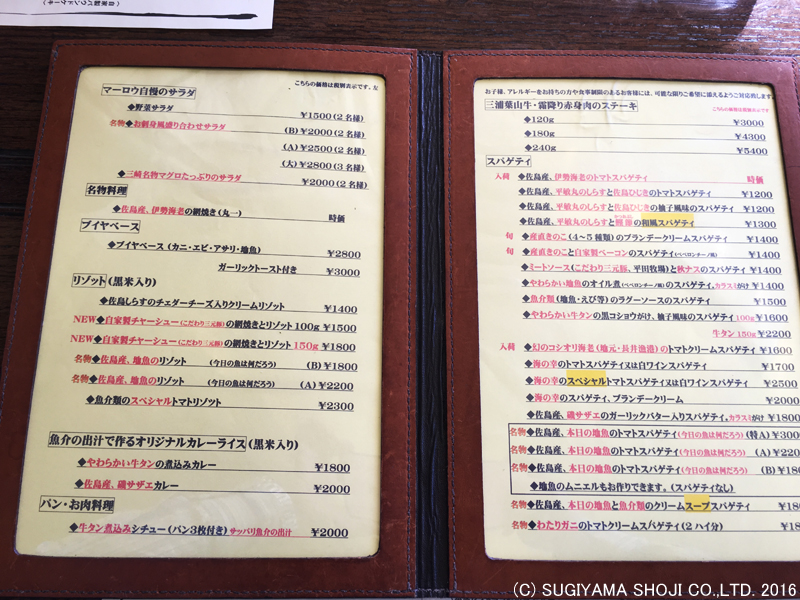 (自家製パウンドケーキ)
こちらの価格は税別表示です。左
マーロウ自慢のサラダ
◆野菜サラダ ¥1500(2名様)
名物◆お刺身風盛り合わせサラダ (B)¥2000(2名様)
(A)¥2500(2名様)
(大)¥2800(3名様)
◆三崎名物マグロたっぷりのサラダ ¥2000(2名様)
名物料理
◆佐島産、伊勢海老の網焼き(丸一) 時価
ブイヤベース
◆ブイヤベース(カニ・エビ・アサリ・地魚) ¥2800
ガーリックトースト付き ¥3000
リゾット(黒米入り)
◆佐島しらすのチェダーチーズ入りクリームリゾット ¥1400
NEW◆自家製チャーシュー(こだわり三元豚)の網焼きとリゾット100g ¥1500
NEW◆自家製チャーシュー(こだわり三元豚)の網焼きとリゾット150g ¥1800
名物◆佐島産、地魚のリゾット (今日の魚は何だろう) (B)¥1800
名物◆佐島産、地魚のリゾット (今日の魚は何だろう) (A)¥2200
◆魚介類のスペシャルトマトリゾット ¥2300
魚介の出汁で作るオリジナルカレーライス(黒米入り)
◆やわらかい牛タンの煮込みカレー ¥1800
◆佐島産、磯サザエカレー ¥2000
パン・お肉料理
◆牛タン煮込みシチュー(パン3枚付き)サッパリ魚介の出汁 ¥2000
お子様、アレルギーをお持ちの方や食事制限のあるお客様には、可能な限りご希望に添えるようご対応致します。
こちらの価格は税別表示です
三浦葉山牛・霜降り赤身肉のステーキ
◆120g ¥3000
◆180g ¥4300
◆240g ¥5400
スパゲティ
入荷 ◆佐島産、伊勢海老のトマトスパゲティ 時価
◆佐島産、平敏丸のしらすと佐島ひじきのトマトスパゲティ ¥1200
◆佐島産、平敏丸のしらすと佐島ひじきの柚子風味のスパゲティ ¥1200
◆佐島産、平敏丸のしらすと の和風スパゲティ ¥1300
旬 ◆産直きのこ(4~5種類)のブランデークリームスパゲティ ¥1400
旬 ◆産直きのこと自家製ベーコンのスパゲティ(ペペロンチーノ風) ¥1400
◆ミートソース(こだわり三元豚、平田牧場)と秋ナスのスパゲティ ¥1400
◆やわらかい地魚のオイル煮(ペペロンチーノ風)のスパゲティ。カラスミがけ ¥1400
◆魚介類(地魚・えび等)のラグーソースのスパゲティ ¥1500
◆やわらかい牛タンの黒コショウがけ、柚子風味のスパゲティ100g ¥1600
牛タン150g ¥2200
入荷 ◆幻のコシオリ海老(地元・長井漁港)のトマトクリームスパゲティ ¥1600
◆海の幸のトマトスパゲティ又は白ワインスパゲティ ¥1700
◆海の幸のスペシャルトマトスパゲティ又は白ワインスパゲティ ¥2500
◆海の幸のスパゲティ、ブランデークリーム ¥2000
◆佐島産、磯サザエのガーリックバター入りスパゲティ。カラスミがけ ¥1800
名物◆佐島産、本日の地魚のトマトスパゲティ(今日の魚は何だろう)(特A)¥300
名物◆佐島産、本日の地魚のトマトスパゲティ(今日の魚は何だろう) (A)¥220
名物◆佐島産、本日の地魚のトマトスパゲティ(今日の魚は何だろう) (B)¥180
◆地魚のムニエルもお作りできます。(スパゲティなし)
名物◆佐島産、本日の地魚と魚介類のクリームスープスパゲティ ¥180
名物◆わたりガニのトマトクリームスパゲティ(2ハイ分) ¥18
(C) SUGIYAMA SHOJI CO.,LTD. 2016